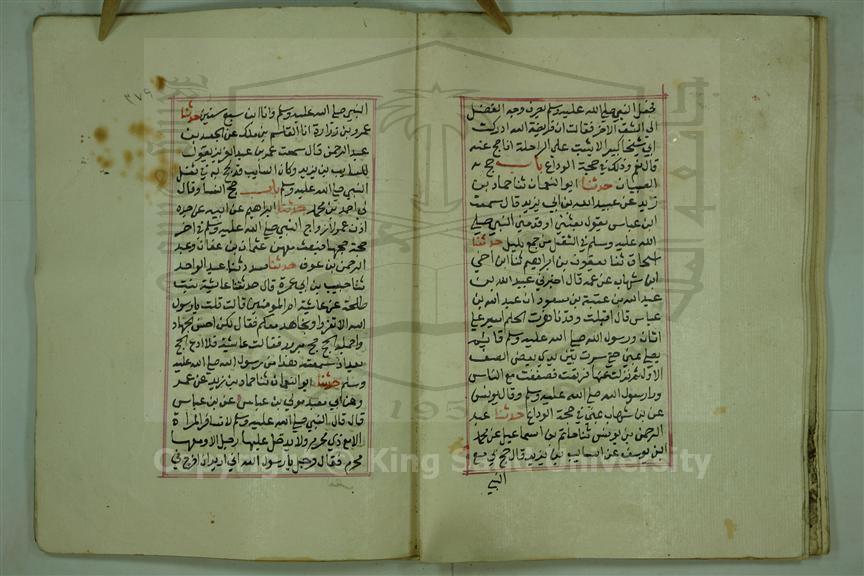 فجعل النبي صلى الله عليه وسلم يصرف وجه الفضل
الى الشق الآخر فقالت ان فريضة الله ادركت
ابي شيخا كبيرا لا يثبت على الراحلة افاحج عنه
قال نعم وذلك في حجة الوداع باب حج
الصبيان حدثنا ابو النعمان ثنا حماد بن
زيد عن عبيد الله بن ابي يزيد قال سمعت
ابن عباس يقول بعثني او قدمني النبي صلى
الله عليه وسلم في الثقل من جمع بليل حدثنا
اسحاق ثنا يعقوب بن ابراهيم ثنا ابن اخي
ابن شهاب عن عمه قال اخبرني عبيد الله بن
عبد الله بن عتبة بن مسعود ان عبد الله بن
عباس قال اقبلت وقد ناهزت الحلم اسير على
اتان ورسول الله صلى الله عليه وسلم قائم
يصلي بمنى حتى سرت بين يدي بعض الصف
الاول ثم نزلت عنها فرتعت فصففت مع الناس
وراء رسول الله صلى الله عليه وسلم وقال يونس
عن بن شهاب بمنى في حجة الوداع حدثنا عبد
الرحمن بن يونس ثنا حاتم بن اسماعيل عن محمد
ابن يوسف عن السايب بن يزيد قال حج بي مع
النبي
٣٧٩
النبي صلى الله عليه وسلم وانا ابن سبع سنين حدثنا
عمرو بن زرارة انا القاسم بن ملك عن الجعيد بن
عبد الرحمن قال سمعت عمر بن عبد العزيز يقول
للسايب بن يزيد وكان السايب قد حج به في ثقل
النبي صلى الله عليه وسلم باب حج النسا وقال
لي احمد بن محمد حدثنا ابراهيم عن ابيه عن جده
اذن عمر لازواج النبي صلى الله عليه وسلم في اخر
حجة حجها فبعث معهن عثمان بن عفان وعبد
الرحمن بن عوف حدثنا مسدد ثنا عبد الواحد
ثنا حبيب بن ابي عمرة قال حدثتنا عائشة بنت
طلحة عن عائشة ام المومنين قالت قلت يا رسول
الله الا نغزوا ونجاهد معكم فقال لكن احسن الجهاد
واجمله الحج حج مبرور فقالت عائشة فلا ادع الحج
بعد اذ سمعت هذا من رسول الله صلى الله عليه
وسلم حدثنا ابو النعمان ثنا حماد بن زيد عن عمر
وعن ابي معبد مولى بن عباس عن بن عباس
قال قال النبي صلى الله عليه وسلم لا تسافر المراة
الا مع ذي محرم ولا يدخل عليها رجل الا ومعها
محرم فقال رجل يا رسول الله اني اريد ان اخرج في
Copyright © King Saud University
195